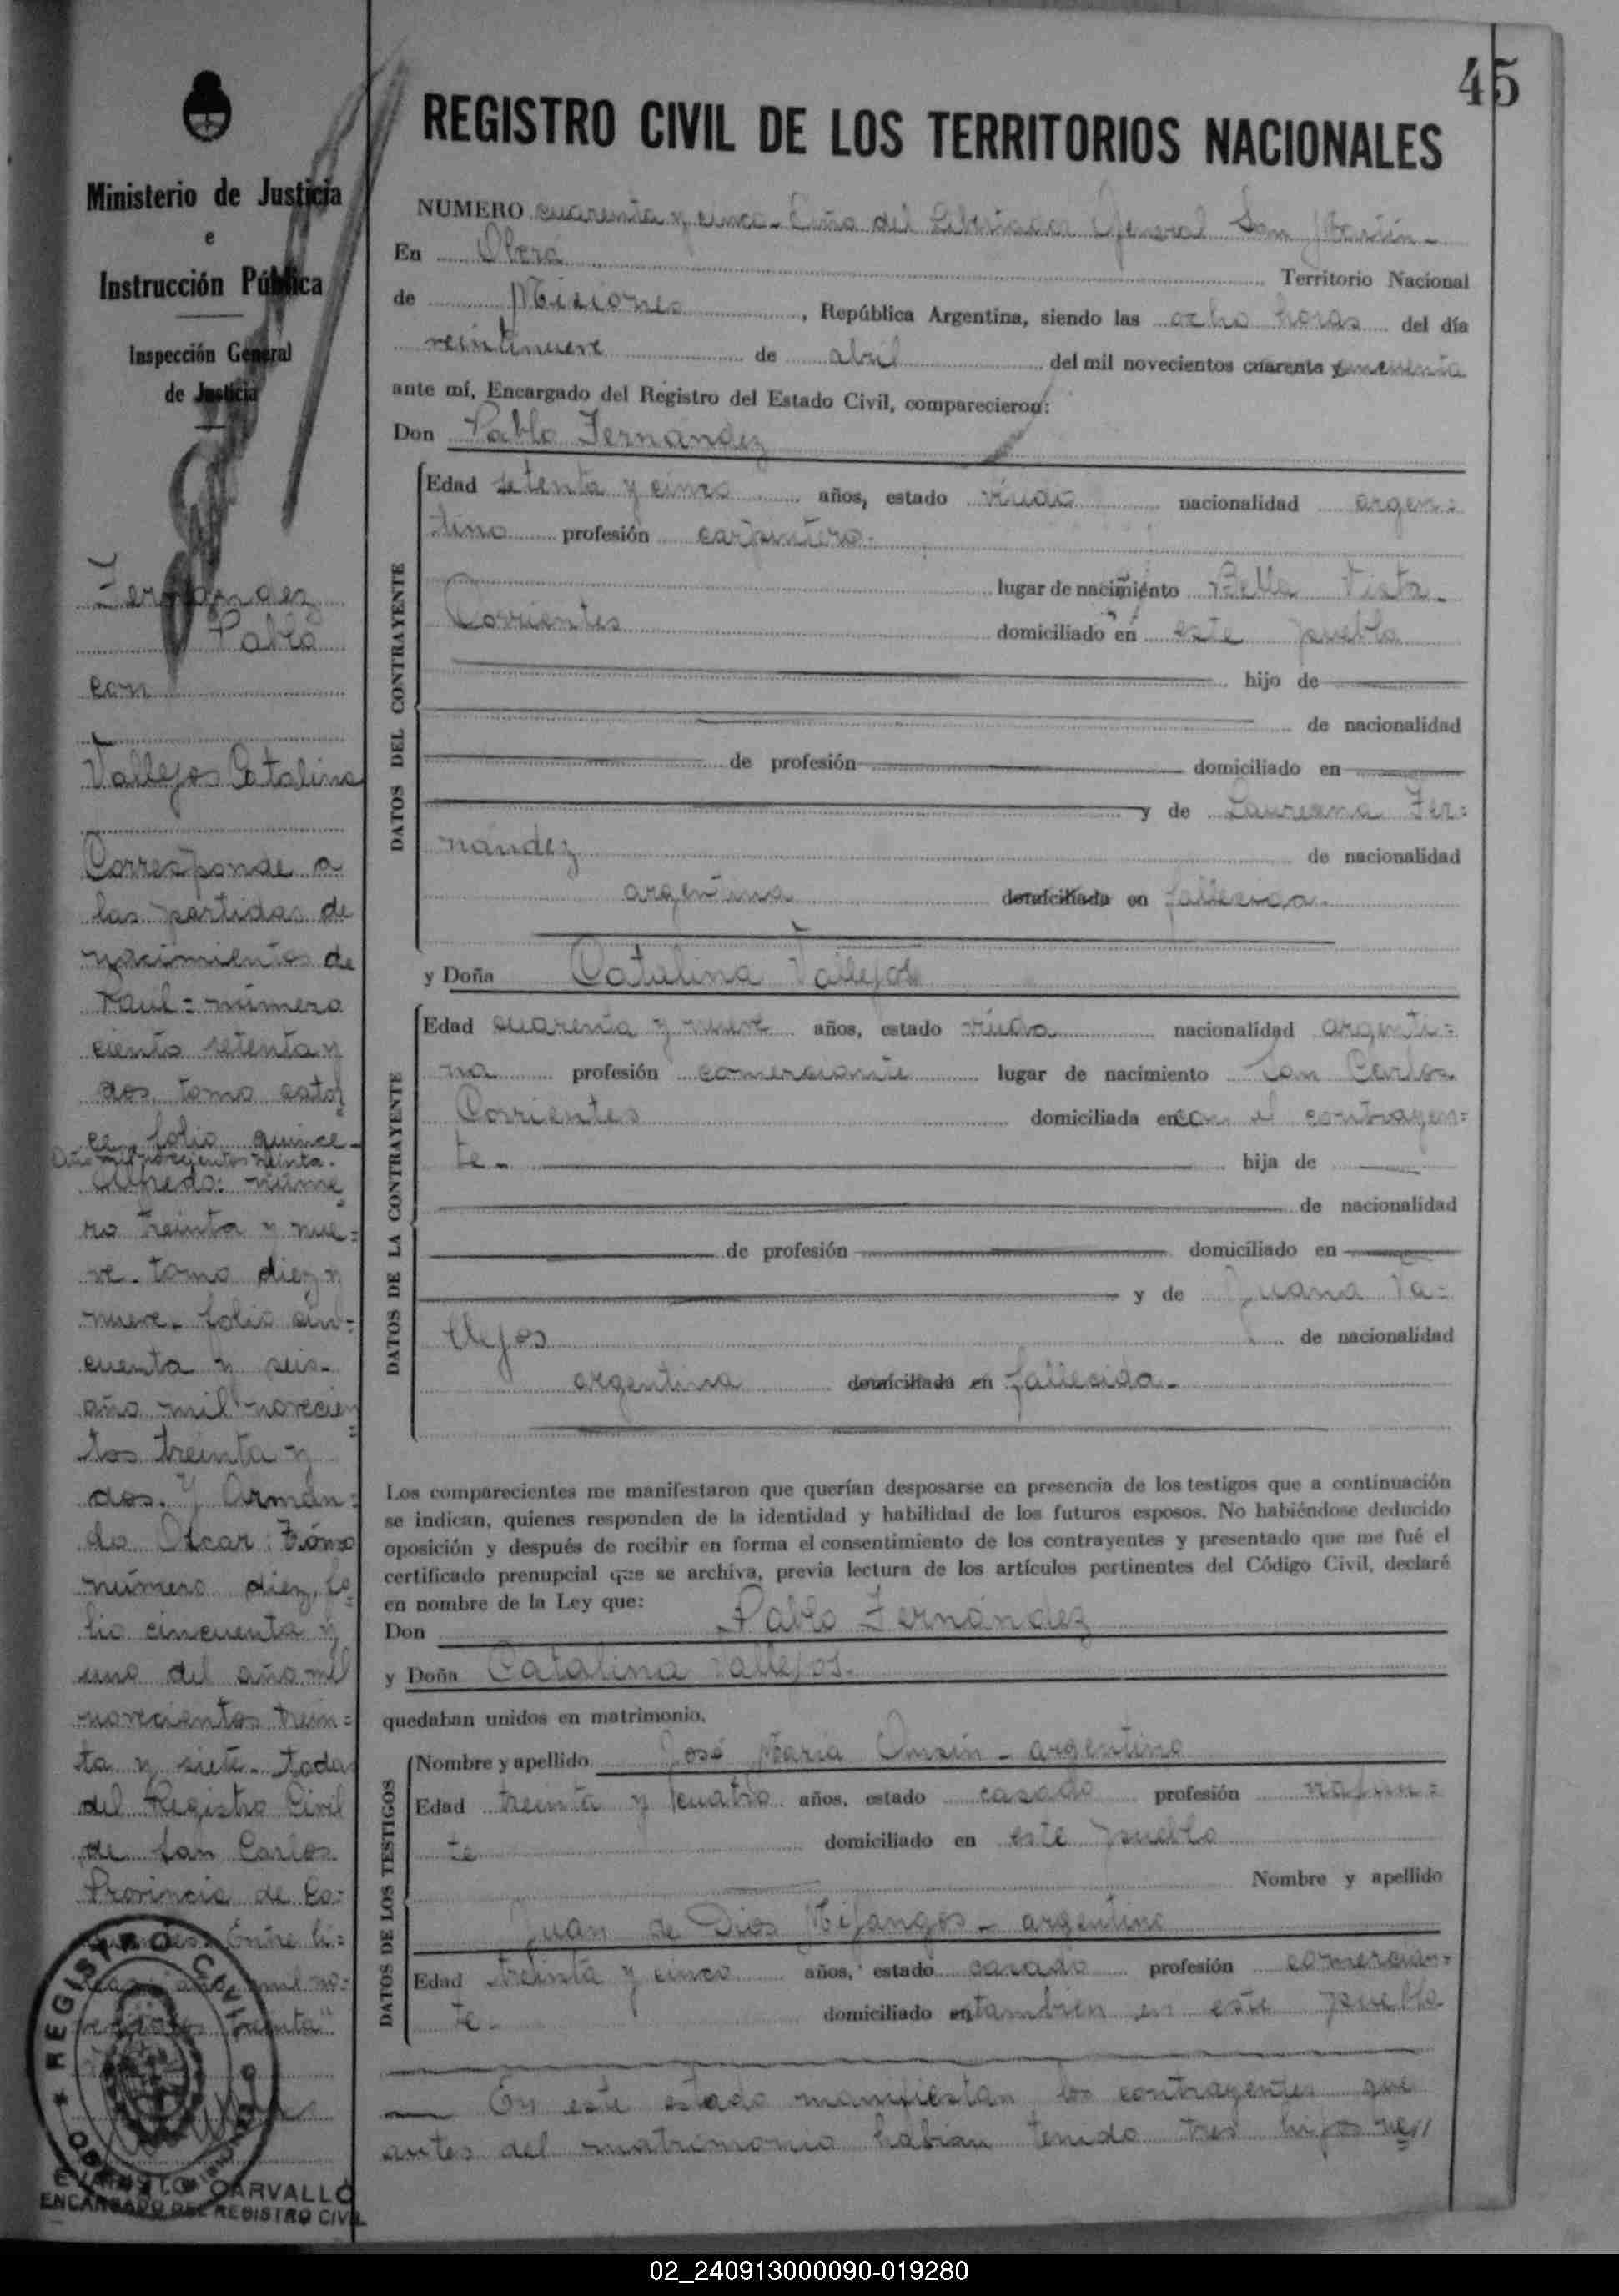 45
REGISTRO CIVIL DE LOS TERRITORIOS NACIONALES
Ministerio de Justicia
e
Instrucción Pública
Inspección General
de Justicia
Fernández
Pablo
con
Vallejos Catalina
Corresponde a
las partidas de
nacimientos de
Raul = número
ciento setenta y
dos tomo cator
ce, folio quince -
Año mil novecientos treinta.
Alfredo: núme
ro treinta y nue=
ve. tomo diez y
nueve. folio cin=
cuenta y seis -
año mil novecien
=
tos treinta y
dos. Y Arman=
do Oscar: Tomo
número diez, fo
lio cincuenta y
uno del año mil
novecientos trein=
ta y siete. todas
del Registro Civil
de San Carlos
Provincia de Co=
rrientes. Entre li=
neas: año mil no=
vecientos treinta"
REGISTRO CIVIL
CARVALLO
ENCARGADO DEL REGISTRO CIVIL
NUMERO cuarenta y cinco - Año del Libertador General San Martín -
En Oberá Territorio Nacional
de Misiones, República Argentina, siendo las ocho horas del día
veintinueve de abril del mil novecientos cuarenta cincuenta
ante mí, Encargado del Registro del Estado Civil, comparecieron:
Don Pablo Fernández
DATOS DEL CONTRAYENTE
Edad setenta y cinco años, estado viudo nacionalidad argen=
tino profesión carpintero.
lugar de nacimiento Bella Vista -
Corrientes domiciliado en este pueblo
hijo de
de nacionalidad
de profesión domiciliado en
y de Laureana Fer=
nández de nacionalidad
argentina domiciliada en fallecida.
y Doña Catalina Vallejos
DATOS DE LA CONTRAYENTE
Edad cuarenta y nueve años, estado viuda nacionalidad argenti=
na profesión comerciante lugar de nacimiento San Carlos
Corrientes domiciliada en con el contrayen=
te - hija de
de nacionalidad
de profesión domiciliado en
y de Juana Va=
llejos de nacionalidad
argentina domiciliada en fallecida -
Los comparecientes me manifestaron que querían desposarse en presencia de los testigos que a continuación
se indican, quienes responden de la identidad y habilidad de los futuros esposos. No habiéndose deducido
oposición y después de recibir en forma el consentimiento de los contrayentes y presentado que me fué el
certificado prenupcial que se archiva, previa lectura de los artículos pertinentes del Código Civil, declaré
en nombre de la Ley que:
Don Pablo Fernández
y Doña Catalina Vallejos.
quedaban unidos en matrimonio.
DATOS DE LOS TESTIGOS
Nombre y apellido José María - argentino
Edad treinta y cuatro años, estado casado profesión
te domiciliado en este pueblo
Nombre y apellido
Juan de Dios Mijangos - argentino
Edad treinta y cinco años, estado casado profesión comercian=
te - domiciliado en también en este pueblo
En este estado manifiestan los contrayentes que
antes del matrimonio habían tenido tres hijos
02_240913000090-019280